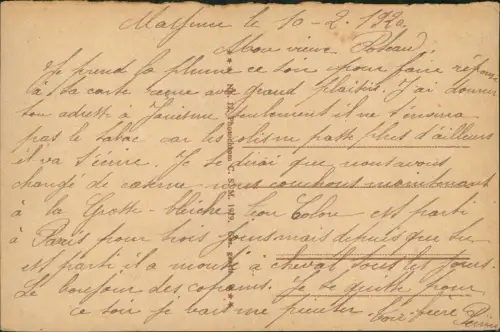 le 10-2. 192
Mon vieux Poteau,
Je prend la plume ce soir pour faire réponse
à ta carte reçue avec grand plaisir. J'ai donner
ton adresse à seulement il ne t'enverra
pas le tabac car les colis ne passe plus d'ailleurs
il va t'écrire. Je te dirai que nous avons
changé de caserne nous couchons maintenant
à la Grotte Colon est parti
à Paris pour trois jours mais depuis que tu
est parti il a monté à cheval tous les jours.
Le bonjour des copains. Je te quitte pour
ce soir je vais me pieuter.